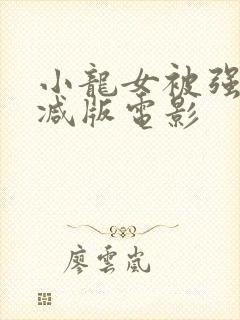 小龍女被强
减版電影
廖雲嵐